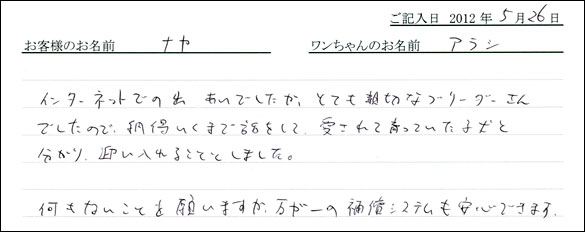 ご記入日 2012年5月26日
お客様のお名前 ナヤ ワンちゃんのお名前 アラシ
インターネットでの出あいでしたが、とても親切なブリーダーさん
でしたので、納得いくまで話をして、愛されて育っていた子犬と
分かり、迎い入れることとしました。
何もないことを願いますが、万が一の補償システムも安心できます。